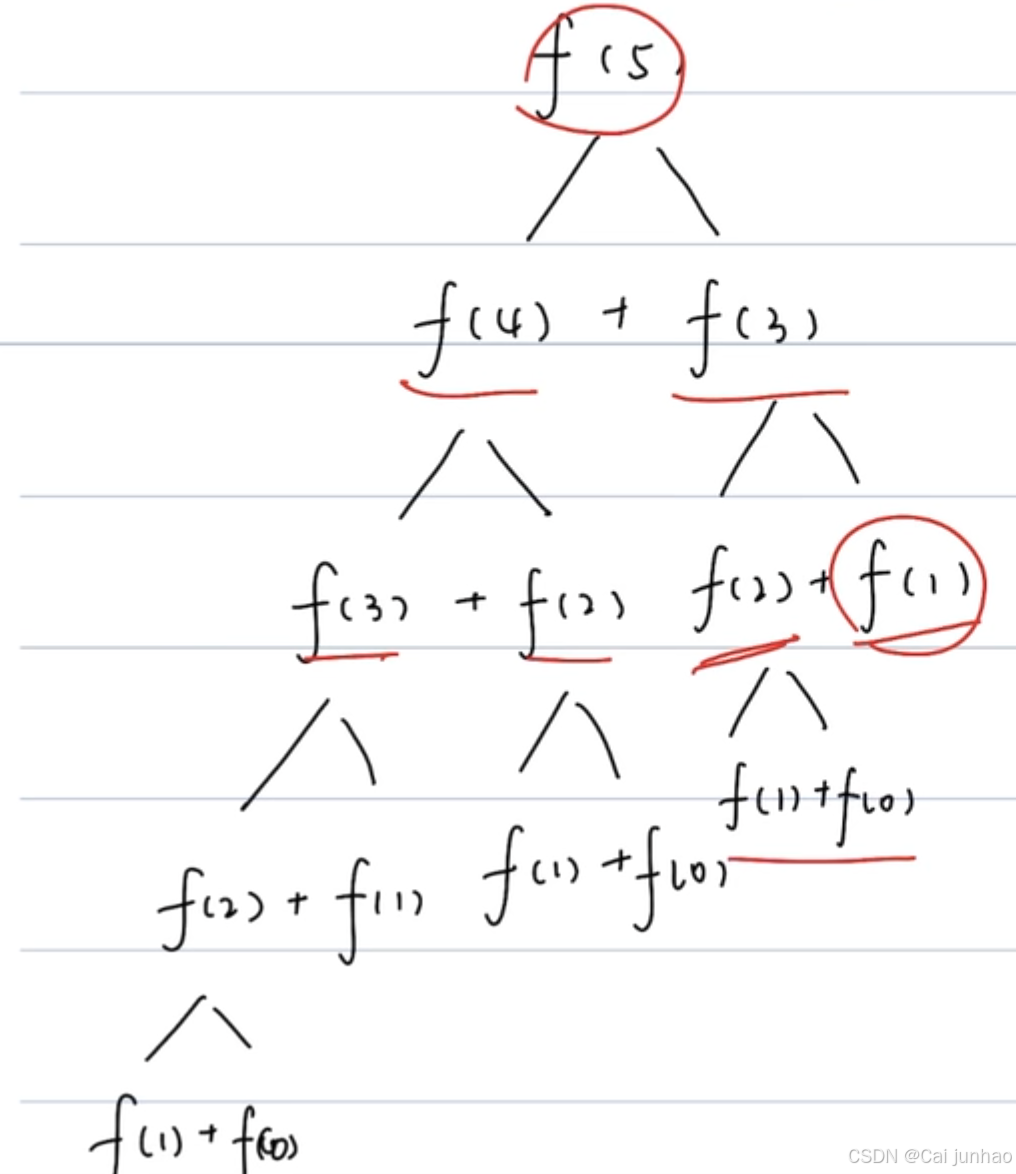 f(5)
f(4) + f(3)
f(3) + f(2) f(2) + f(1)
f(1) + f(0)
f(2) + f(1) f(1) + f(0)
f(1) + f(0)
CSDN @Cai junhao